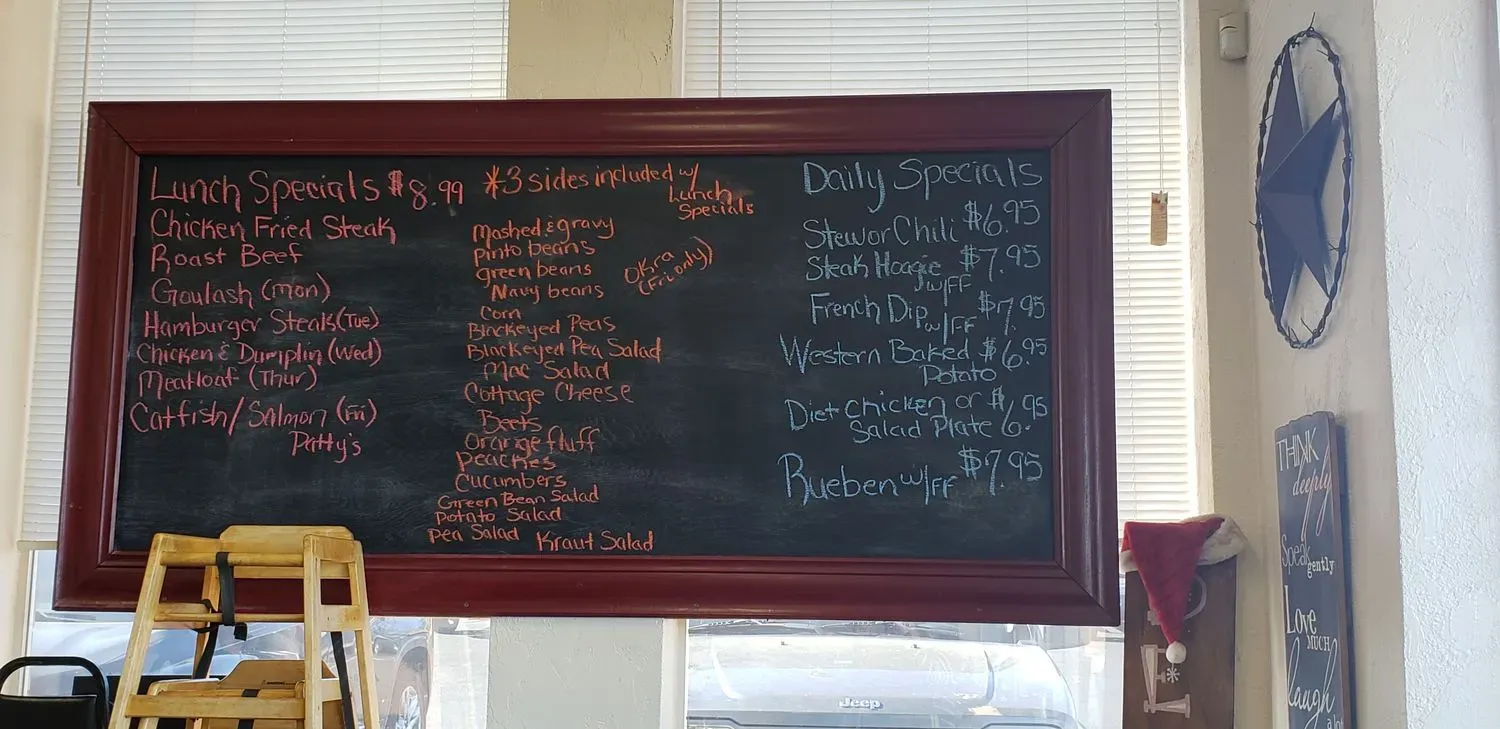 Lunch Specials $8.99
Chicken Fried Steak
Roast Beef
Goulash (Mon)
Hamburger Steak (Tue)
Chicken & Dumplin (Wed)
Meatloaf (Thur)
Catfish/Salmon (Fri)
Patty's
*3 sides included w/
Lunch
Specials
Mashed & gravy
Pinto beans
green beans
Navy beans
Okra
(Fri only)
Corn
Blackeyed Peas
Blackeyed Pea Salad
Mac Salad
Cottage Cheese
Beets
Orange fluff
Peaches
Cucumbers
Green Bean Salad
Potato Salad
Pea Salad Kraut Salad
Daily Specials
Stew or Chili $6.95
Steak Hoagie $7.95
w/FF
French Dip w/FF $7.95
Western Baked $6.95
Potato
Diet Chicken or $6.95
Salad Plate
Rueben w/FF $7.95
THINK
deeply
Speak
gently
Love
MUCH
laugh
Jeep